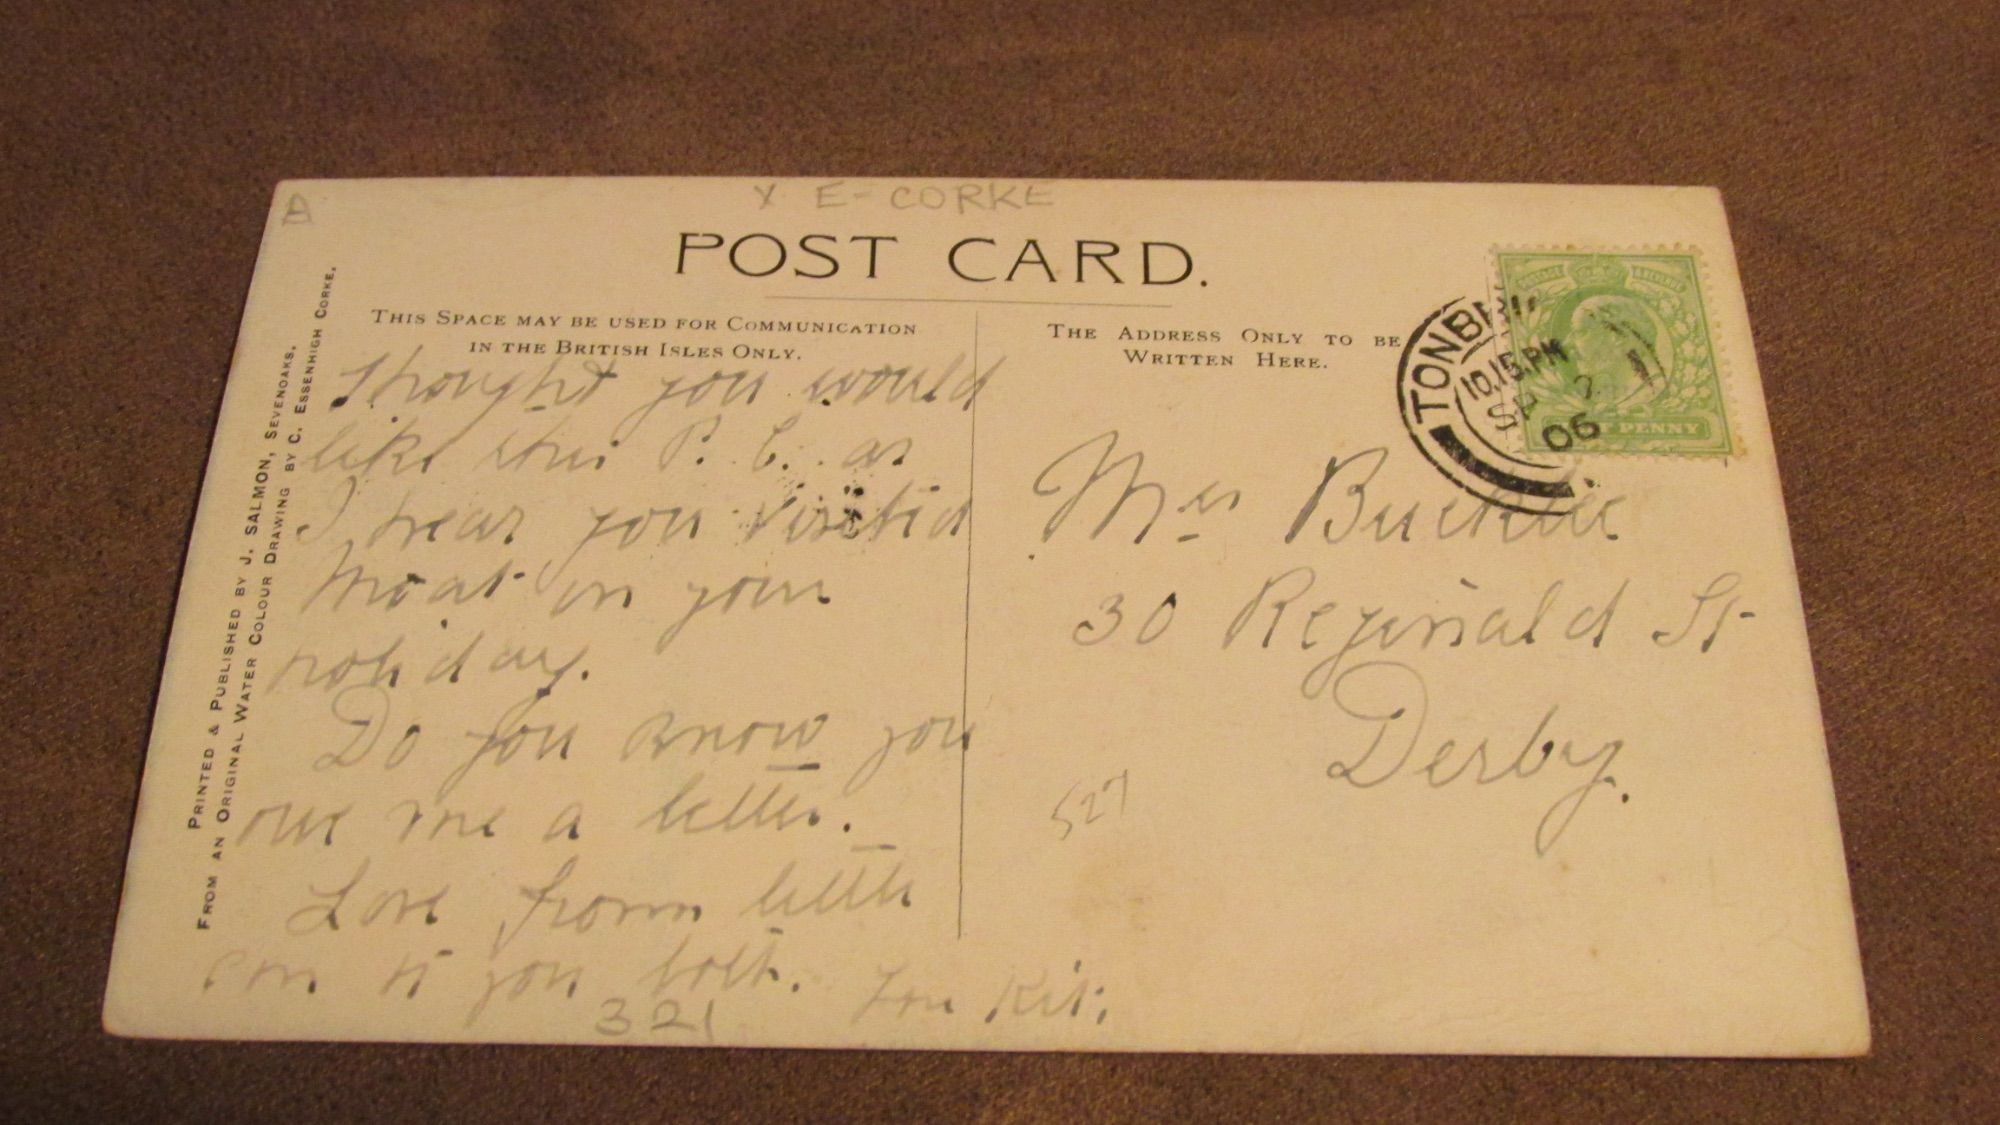 E-CORKE
POST CARD.
THIS SPACE MAY BE USED FOR COMMUNICATION
IN THE BRITISH ISLES ONLY.
THE ADDRESS ONLY TO BE
WRITTEN HERE.
PRINTED & PUBLISHED BY J. SALMON, SEVENOAKS,
FROM AN ORIGINAL WATER COLOUR DRAWING BY C. ESSENHIGH CORKE.
Thought you would
like this P.C. as
I hear you visited
Moat on your
holiday.
Do you know you
owe me a letter.
Love from
to you both. Kit.
321
TONBRI
10.15.PM
SP 2
06
PENNY
Mrs
30 Reginald St
Derby.
527